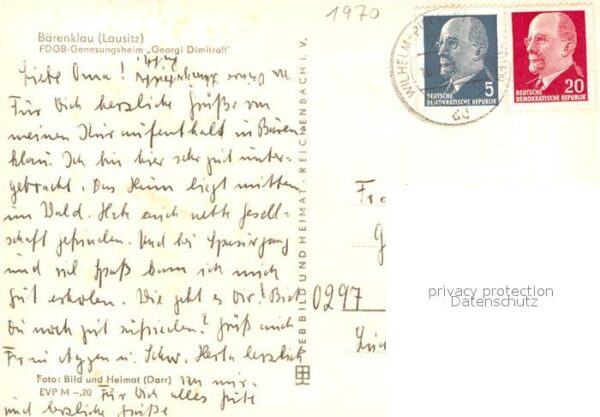 1970
Bärenklau (Lausitz)
FDGB-Genesungsheim „Georgi Dimitroff"
Liebe Oma!
Für Dich herzliche Grüße von
meinem Kuraufenthalt in Bären-
klau. Ich bin hier sehr gut unter-
gebracht. Das Heim liegt mitten
im Wald. Habe auch nette Gesell-
schaft gefunden. Und bei Spaziergang
und viel Spaß kann ich mich
gut erholen. Wie geht es Dir? Bist
Du noch gut zufrieden? Grüß auch
Frau u. Schw. Herta herzlich
von mir.
Für Dich alles Gute
und herzliche Grüße
Foto: Bild und Heimat (Darr)
EVP M –,20
VEB BILD UND HEIMAT · REICHENBACH i. V.
WILHELM-P
5
DEUTSCHE
DEMOKRATISCHE REPUBLIK
20
DEUTSCHE
DEMOKRATISCHE REPUBLIK
0297
privacy protection
Datenschutz